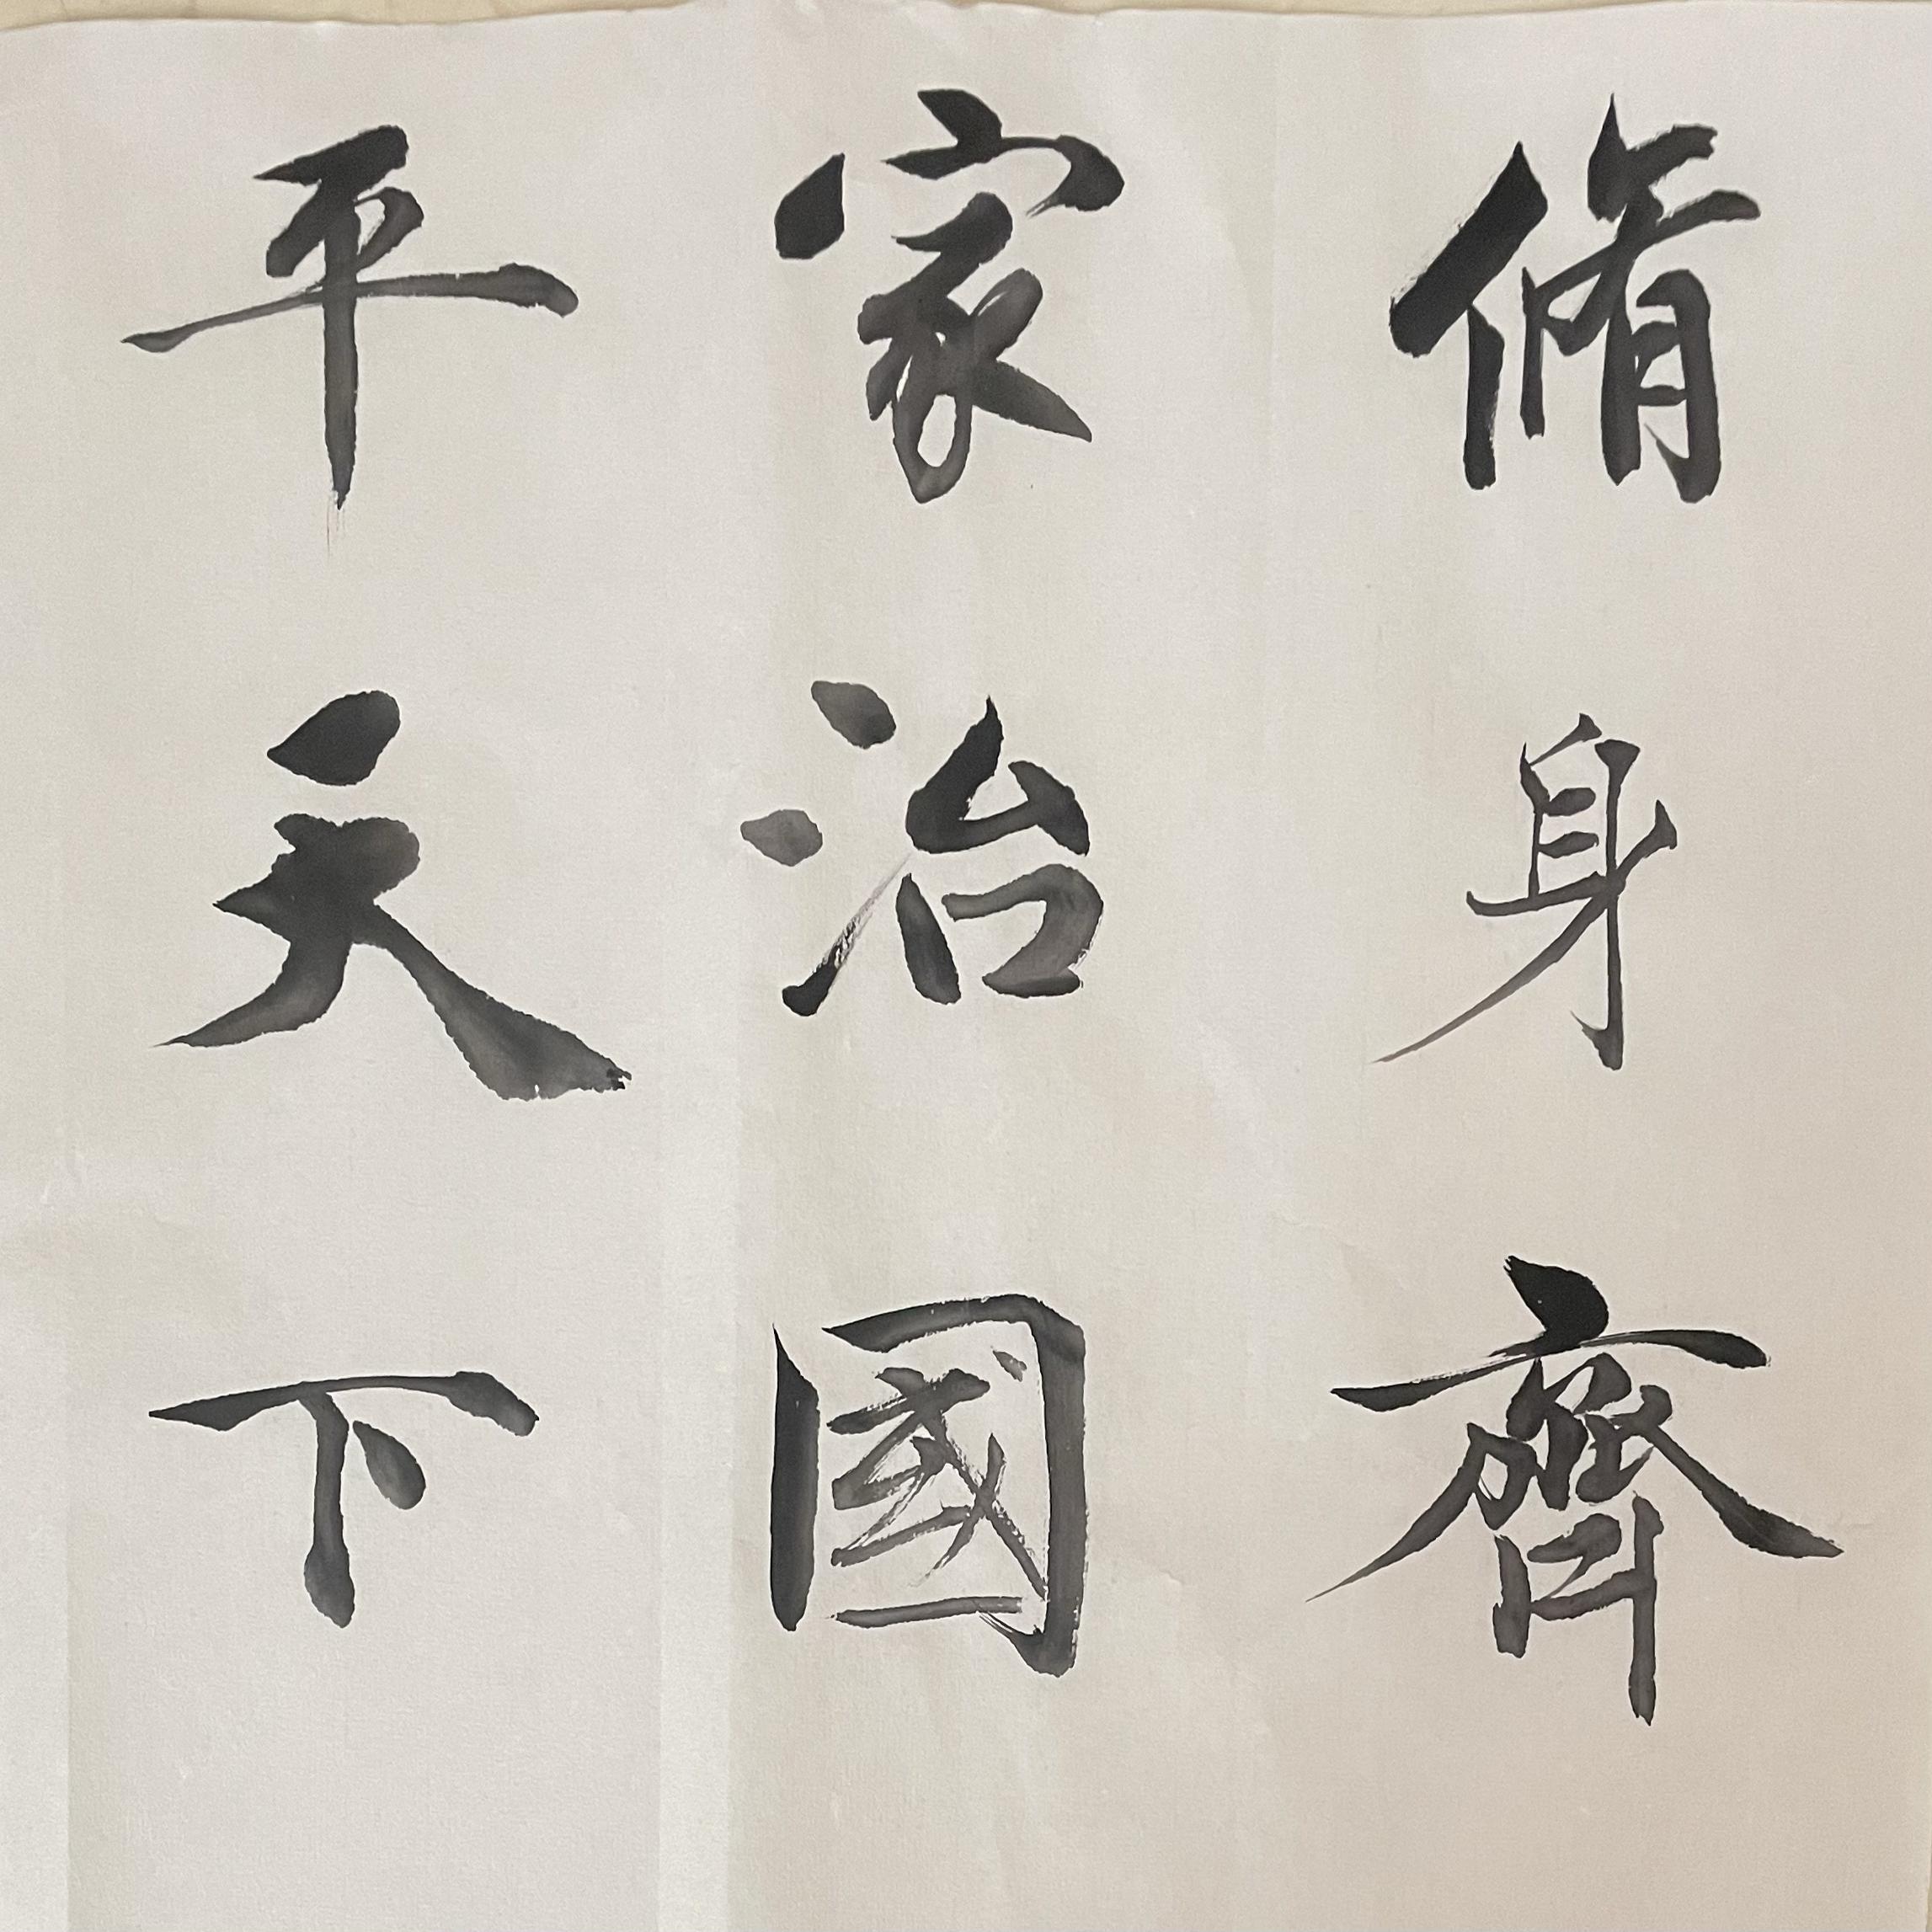 脩身齊
家治國
平天下